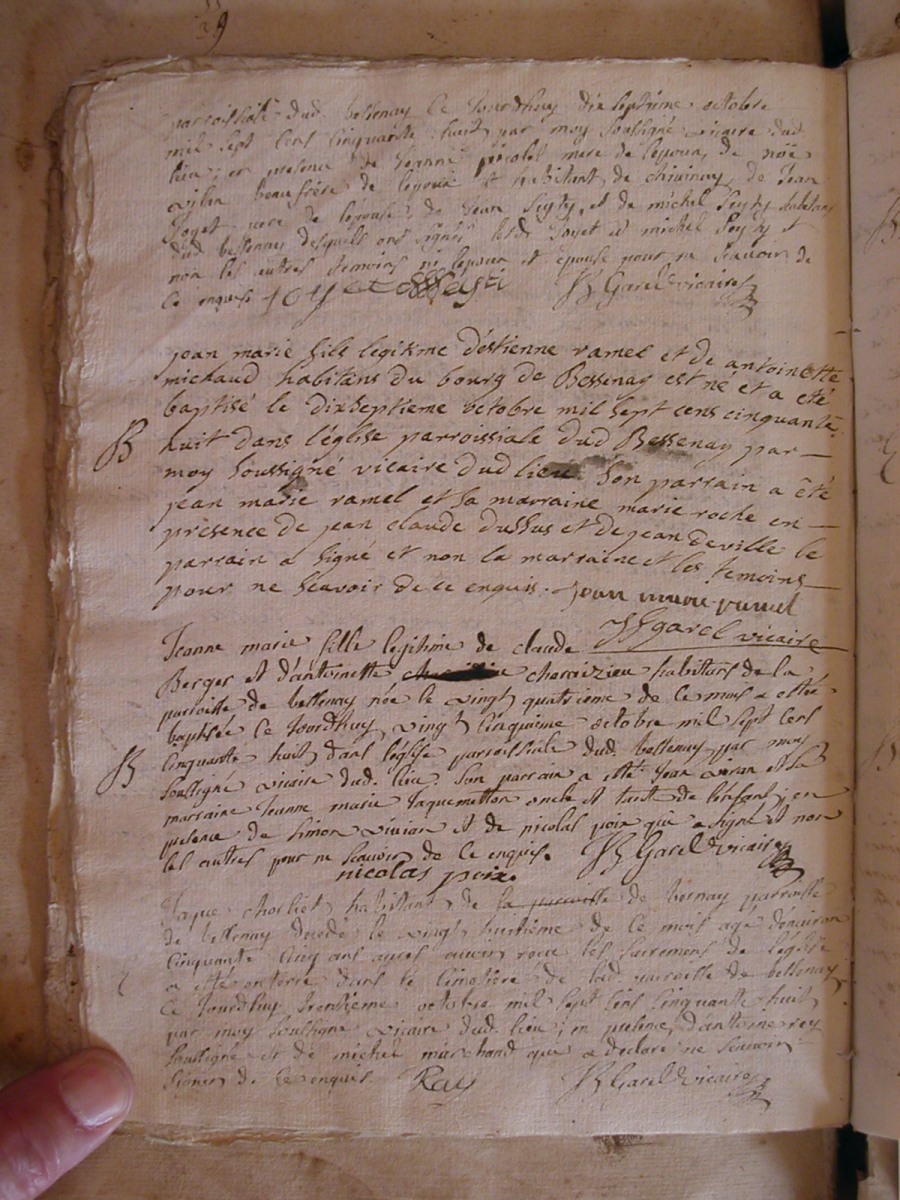 parroissiale dud. bessenay ce jourdhuy dixseptieme octobre
mil sept cens cinquante huit par moy soussigné vicaire dud
lieu, en presence de jeanne picolet mere de lepoux, de noë
beaufrère de lepoux et habitant de de jean
joyet pere de lepouse de jean et de michel habitans
dud bessenay desquels ont signés lesd. joyet et michel et
non les autres temoins ni lepoux et epouse pour ne sçauoir de
ce enquis joyet Garel vicaire
jean marie fils legitime d'estienne ramel et de antoinette
michaud habitans du bourg de Bessenay est né et a été
baptisé le dixseptieme octobre mil sept cens cinquante
B huit dans l'église parroissiale dud Bessenay par
moy soussigné vicaire dud lieu son parrain a été
jean marie ramel et sa marraine marie roche en
présence de jean claude dussus et de jean deville le
parrain a signé et non la marraine et les temoins
pour ne sçavoir de ce enquis. jean marie ramel
garel vicaire
Jeanne marie fille legitime de claude
Berger et d'antoinette charvizieu habitans de la
parroisse de bessenay née le vingt quatrieme de ce mois a estée
baptisée ce jourdhuy vingt cinquieme octobre mil sept cens
cinquante huit dans l'église parroissiale dud. bessenay par moy
B soussigné vicaire dud. lieu. son parrain a esté jean vivian et sa
marraine jeanne marie jaquemetton oncle et tante de lenfant, en
presence de simon vivian et de nicolas poix que a signé et non
les autres pour ne sçauoir de ce enquis. Garel vicaire
nicolas poix.
jaque habitant de la parroisse de bernay parroisse
de bessenay decedé le vingt huitieme de ce mois agé denuiron
cinquante cinq ans apres auoir receu les sacremens de l'église
a esté enterré dans le cimetière de lad. parroisse de bessenay
ce jourdhuy trentieme octobre mil sept cens cinquante huit
par moy soussigné vicaire dud. lieu, en presence d'antoine rey
soussigné et de michel marchand que a declaré ne sçauoir
signer de ce enquis Rey Garel vicaire